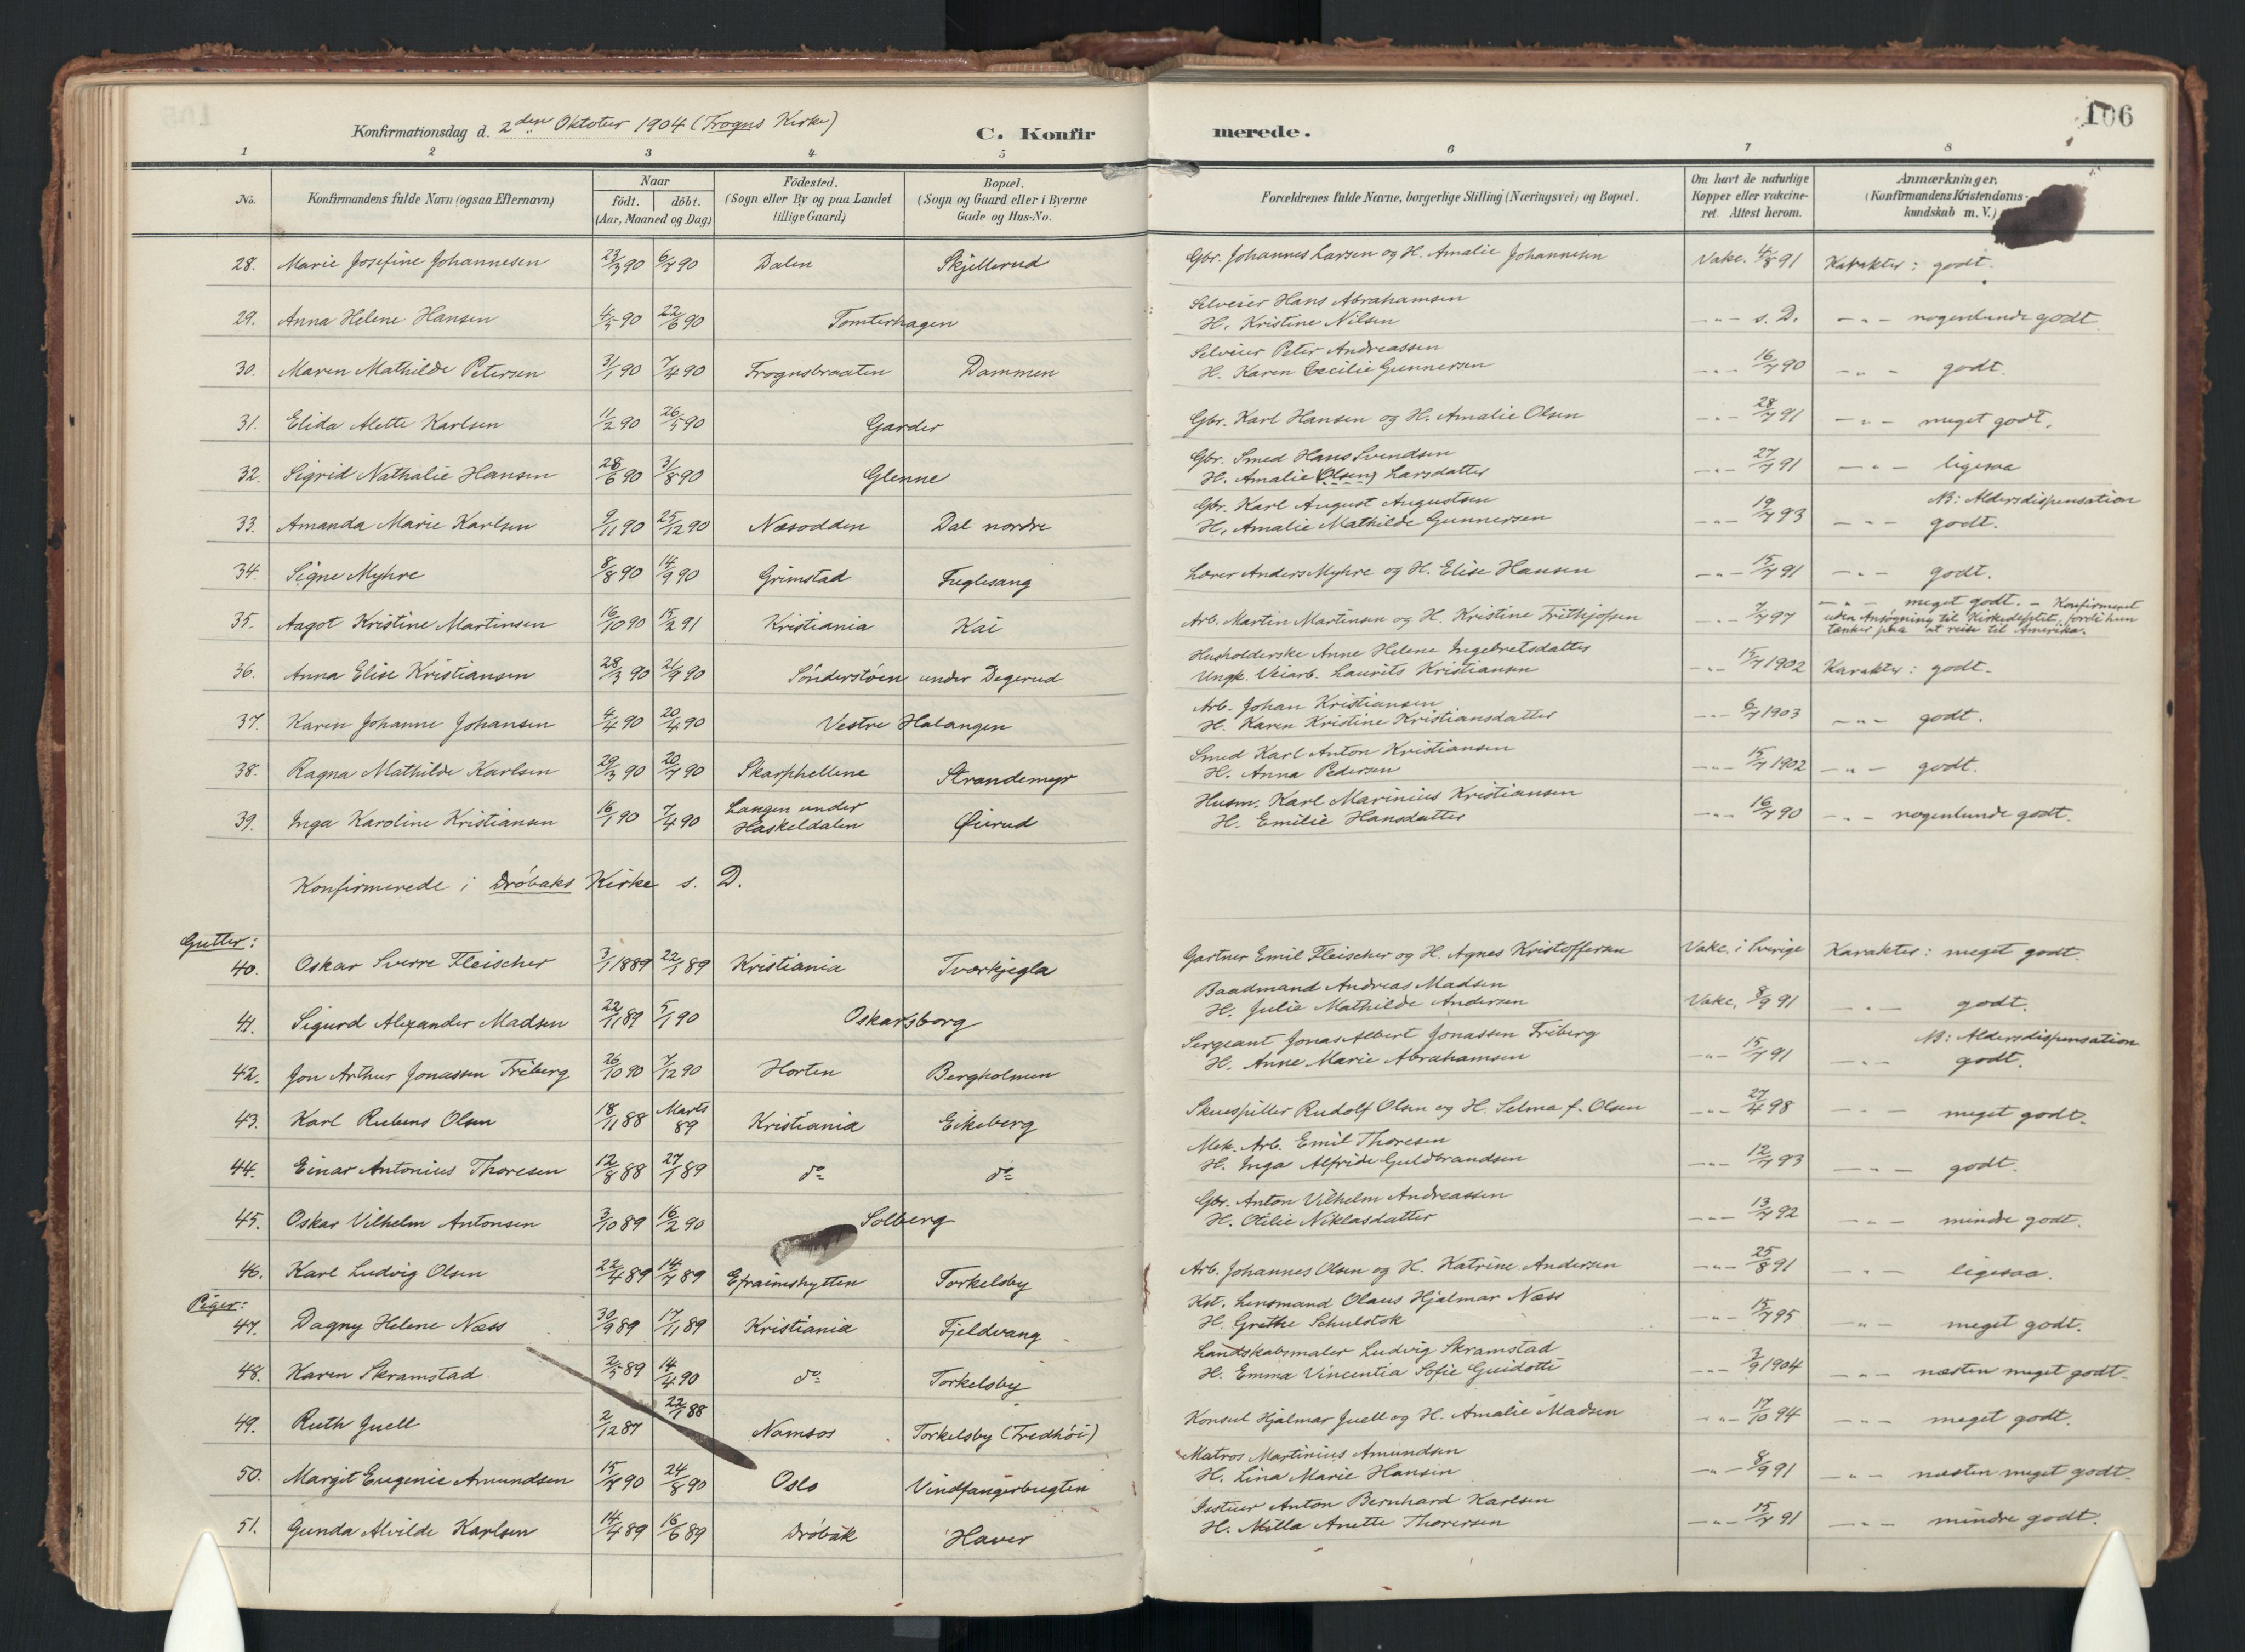 106
Konfirmationsdag d. 2den Oktober 1904 (Frogns Kirke)
C. Konfirmerede.
1 2 3 4 5 6 7 8
No. Konfirmandens fulde Navn (ogsaa Efternavn) Naar födt. döbt. (Aar, Maaned og Dag) Födested. (Sogn eller By og paa Landet tillige Gaard) Bopæl. (Sogn og Gaard eller i Byerne Gade og Hus-No. Forældrenes fulde Navne, borgerlige Stilling (Næringsvei) og Bopæl. Om havt de naturlige Kopper eller vakcineret. Attest herom. Anmærkninger, (Konfirmandens Kristendomskundskab m. V.)
28. Marie Josefine Johannesen 23/3 90 6/7 90 Dalen Skjellerud Gbr. Johannes Larsen og H. Amalie Johannesen Vakc. 4/8 91 Karakter: godt.
29. Anna Helene Hansen 4/5 90 22/6 90 Tomterhagen Selveier Hans Abrahamsen H. Kristine Nilsen -"- s. D. -"- nogenlunde godt
30. Maren Mathilde Petersen 31/1 90 7/4 90 Frognsbraaten Dammen Selveier Peter Andreassen H. Karen Cecilie Gunnersen -"- 16/7 90 -"- godt.
31. Elida Alette Karlsen 11/2 90 26/5 90 Garder Gbr. Karl Hansen og H. Amalie Olsen -"- 28/7 91 -"- meget godt.
32. Sigrid Nathalie Hansen 28/6 90 31/8 90 Glenne Gbr. Smed Hans Svendsen H. Amalie (Olsen) Larsdatter -"- 27/7 91 -"- ligesaa
33. Amanda Marie Karlsen 9/11 90 25/12 90 Næsodden Dal nordre Gbr. Karl August Augustsen H. Amalie Mathilde Gunnersen -"- 19/7 93 -"- NB: Aldersdispensation godt.
34. Signe Myhre 8/8 90 14/9 90 Grimstad Fuglesang Lærer Anders Myhre og H. Elise Hansen -"- 15/7 91 -"- godt.
35. Aagot Kristine Martinsen 16/10 90 15/2 91 Kristiania Kai Arb. Martin Martinsen og H. Kristine Frithjofsen -"- 7/7 97 -"- meget godt. - Konfirmeret uden Ansøgning til Kirkedeptet, fordi hun tænker paa at reise til Amerika.
36. Anna Elise Kristiansen 28/3 90 21/9 90 Sönderstöen under Degerud Husholderske Anne Helene Ingebretsdatter Ungk. Veiarb. Laurits Kristiansen -"- 15/7 1902 Karakter: godt.
37. Karen Johanne Johansen 4/4 90 20/4 90 Vestre Halangen Arb. Johan Kristiansen H. Karen Kristine Kristiansdatter -"- 6/7 1903 -"- godt.
38. Ragna Mathilde Karlsen 29/3 90 20/7 90 Skarphellene Strandemyr Smed Karl Anton Kristiansen H. Anna Pedersen -"- 15/7 1902 -"- godt.
39. Inga Karoline Kristiansen 16/1 90 7/4 90 Langen under Haskeldalen Øierud Husm. Karl Marinius Kristiansen H. Emilie Hansdatter -"- 16/7 90 -"- nogenlunde godt.
Konfirmerede i Dröbaks Kirke s. D.
Gutter:
40. Oskar Sverre Fleischer 3/1 1889 22/1 89 Kristiania Tværkjegla Gartner Emil Fleischer og H. Agnes Kristoffersen Vakc. i Sverige Karakter: meget godt.
41. Sigurd Alexander Madsen 22/11 89 5/1 90 Oskarsborg Baadmand Andreas Madsen H. Julie Mathilde Andersen Vakc. 8/9 91 -"- godt.
42. Jon Arthur Jonassen Friberg 26/10 90 7/12 90 Horten Bergholmen Sergeant Jonas Albert Jonassen Friberg H. Anne Marie Abrahamsen -"- 15/7 91 -"- NB: Aldersdispensation godt.
43. Karl Rubens Olsen 18/11 88 Marts 89 Kristiania Eikeberg Skuespiller Rudolf Olsen og H. Selma f. Olsen -"- 27/4 98 -"- meget godt.
44. Einar Antonius Thoresen 12/8 88 27/1 89 do do Mek. Arb. Emil Thoresen H. Inga Alfride Guldbrandsen -"- 12/7 93 -"- godt.
45. Oskar Vilhelm Antonsen 3/10 89 16/2 90 Solberg Gbr. Anton Vilhelm Andreassen H. Otilie Niklasdatter -"- 13/7 92 -"- mindre godt.
46. Karl Ludvig Olsen 22/4 89 14/7 89 Efraimshytten Torkelsby Arb. Johannes Olsen og H. Katrine Andersen -"- 25/8 91 -"- ligesaa.
Piger:
47. Dagny Helene Næss 30/9 89 17/11 89 Kristiania Fjeldvang Kst. Lensmand Olaus Hjalmar Næss H. Grethe Schulstok -"- 15/7 95 -"- meget godt.
48. Karen Skramstad 2/5 89 14/4 90 do Torkelsby Landskabsmaler Ludvig Skramstad H. Emma Vincentia Sofie Guidotti -"- 3/9 1904 -"- næsten meget godt.
49. Ruth Juell 2/12 87 22/1 88 Namsos Torkelsby (Fredhöi) Konsul Hjalmar Juell og H. Amalie Madsen -"- 17/10 94 -"- meget godt.
50. Margit Eugenie Amundsen 15/7 90 24/8 90 Oslo Vindfangerbugten Matros Martinius Amundsen H. Lina Marie Hansen -"- 8/9 91 -"- næsten meget godt.
51. Gunda Alvilde Karlsen 14/4 89 16/6 89 Dröbak Haver Anton Bernhard Karlsen H. Milla Anette Thorersen -"- 15/7 91 -"- mindre godt.